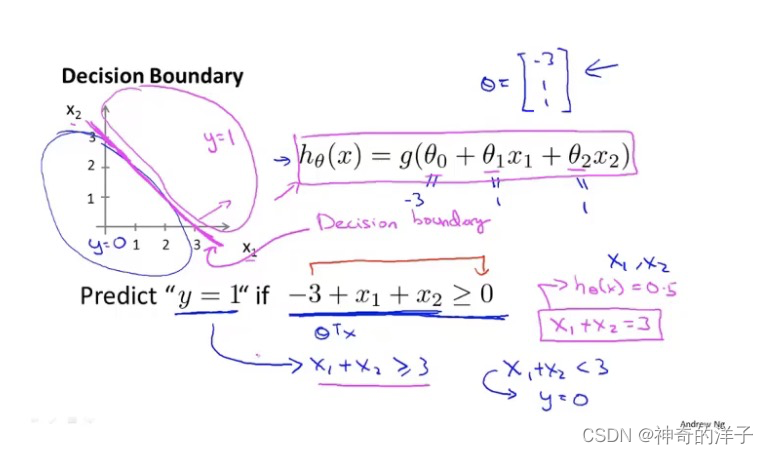 Decision Boundary
θ = [-3 1 1]
x₂
3
2
1
1 2 3
x₁
y=1
y=0
h_θ(x) = g(θ₀ + θ₁x₁ + θ₂x₂)
-3 1 1
Decision boundary
Predict “y = 1“ if −3 + x₁ + x₂ ≥ 0
θᵀx
x₁ + x₂ ≥ 3
x₁, x₂
h_θ(x) = 0.5
x₁ + x₂ = 3
x₁ + x₂ < 3
y = 0
Andrew Ng
CSDN @神奇的洋子